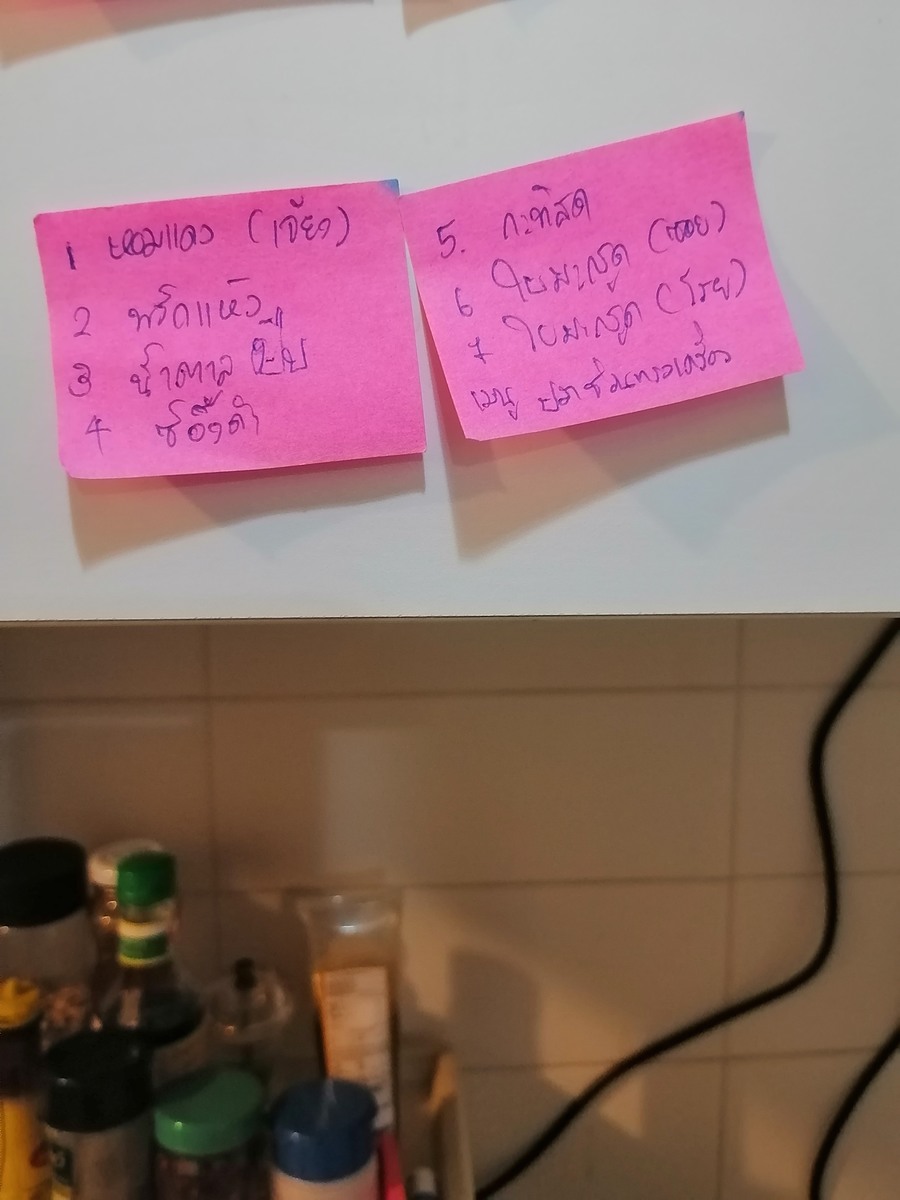 1 หอมแดง (เจียว)
2 พริกแห้ง
3 น้ำตาลปี๊บ
4 ซีอิ๊วดำ
5. กะทิสด
6 ใบมะกรูด (ซอย)
7 ใบมะกรูด (โรย)
เมนู ปลาช่อนทรงเครื่อง